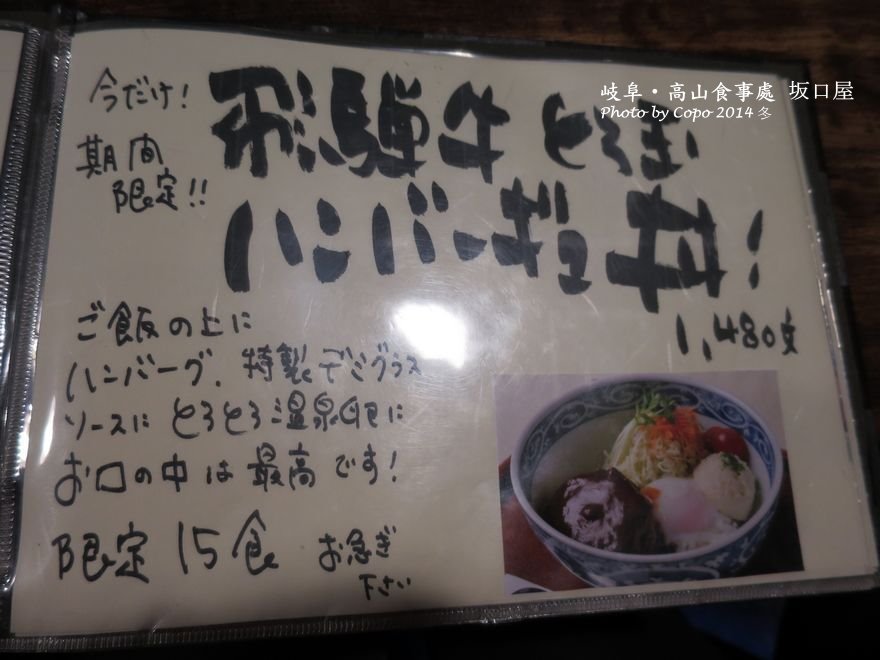 岐阜・高山食事處 坂口屋
Photo by Copo 2014 冬
今だけ!
期間
限定!!
飛騨牛とろ玉
ハンバーギュ丼!
1,480文
ご飯の上に
ハンバーグ、特製デミグラス
ソースにとろとろ温泉卵に
お口の中は最高です!
限定15食 お急ぎ
下さい